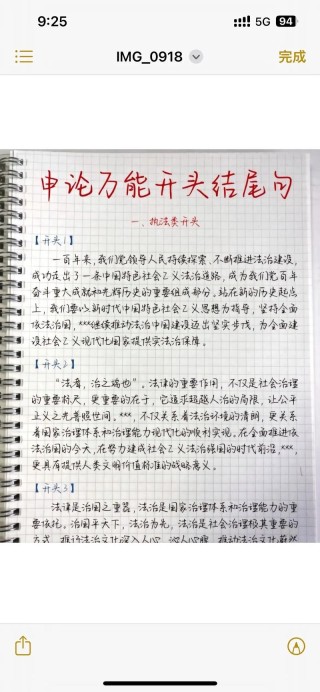 9:25
5G
94
IMG_0918
完成
申论万能开头结尾句
一、执法类开头
【开头1】
一百年来,我们党领导人民持续探索、不断推进法治建设,
成功走出了一条中国特色社会主义法治道路,成为我们党百年
奋斗重大成就和光辉历史的重要组成部分。站在新的历史起点
上,我们要以新时代中国特色社会主义思想为指导,坚持全面
依法治国,***继续推动法治中国建设迈出坚实步伐,为全面建
设社会主义现代化国家提供实法治保障。
【开头2】
“法者,治之端也”。法律的重要作用,不仅是社会治理
的重要标尺,更重要的在于,它追求超越人治的局限,让公平
正义之光普照世间。***,不仅关系着法治环境的清朗,更关系
着国家治理体系和治理能力现代化的顺利实现。在全面推进依
法治国的今天,在努力建成社会主义法治强国的时代前沿,***,
更具有提供人类文明价值标准的战略意义。
【开头3】
法律是治国之重器,法治是国家治理体系和治理能力的重
要依托。治国平天下,法治为先,法治是社会治理极其重要的
方式。推动法治文化深入人心、沁人心脾,推动法治文化蔚然